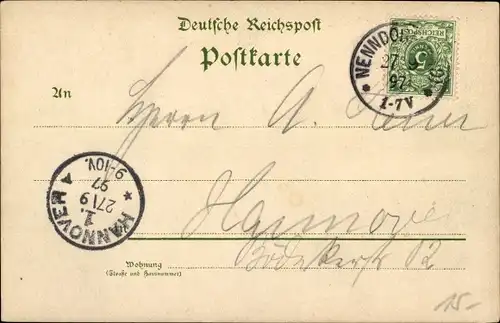 Deutsche Reichspost
Postkarte
NENNDORF
27
97
1-7V
REICHSPOST
5
An
Herrn A.
HANNOVER
1.
27/9
97
9-10V.
Hannover
Bödekerstr 12
Wohnung
(Straße und Hausnummer)
15-